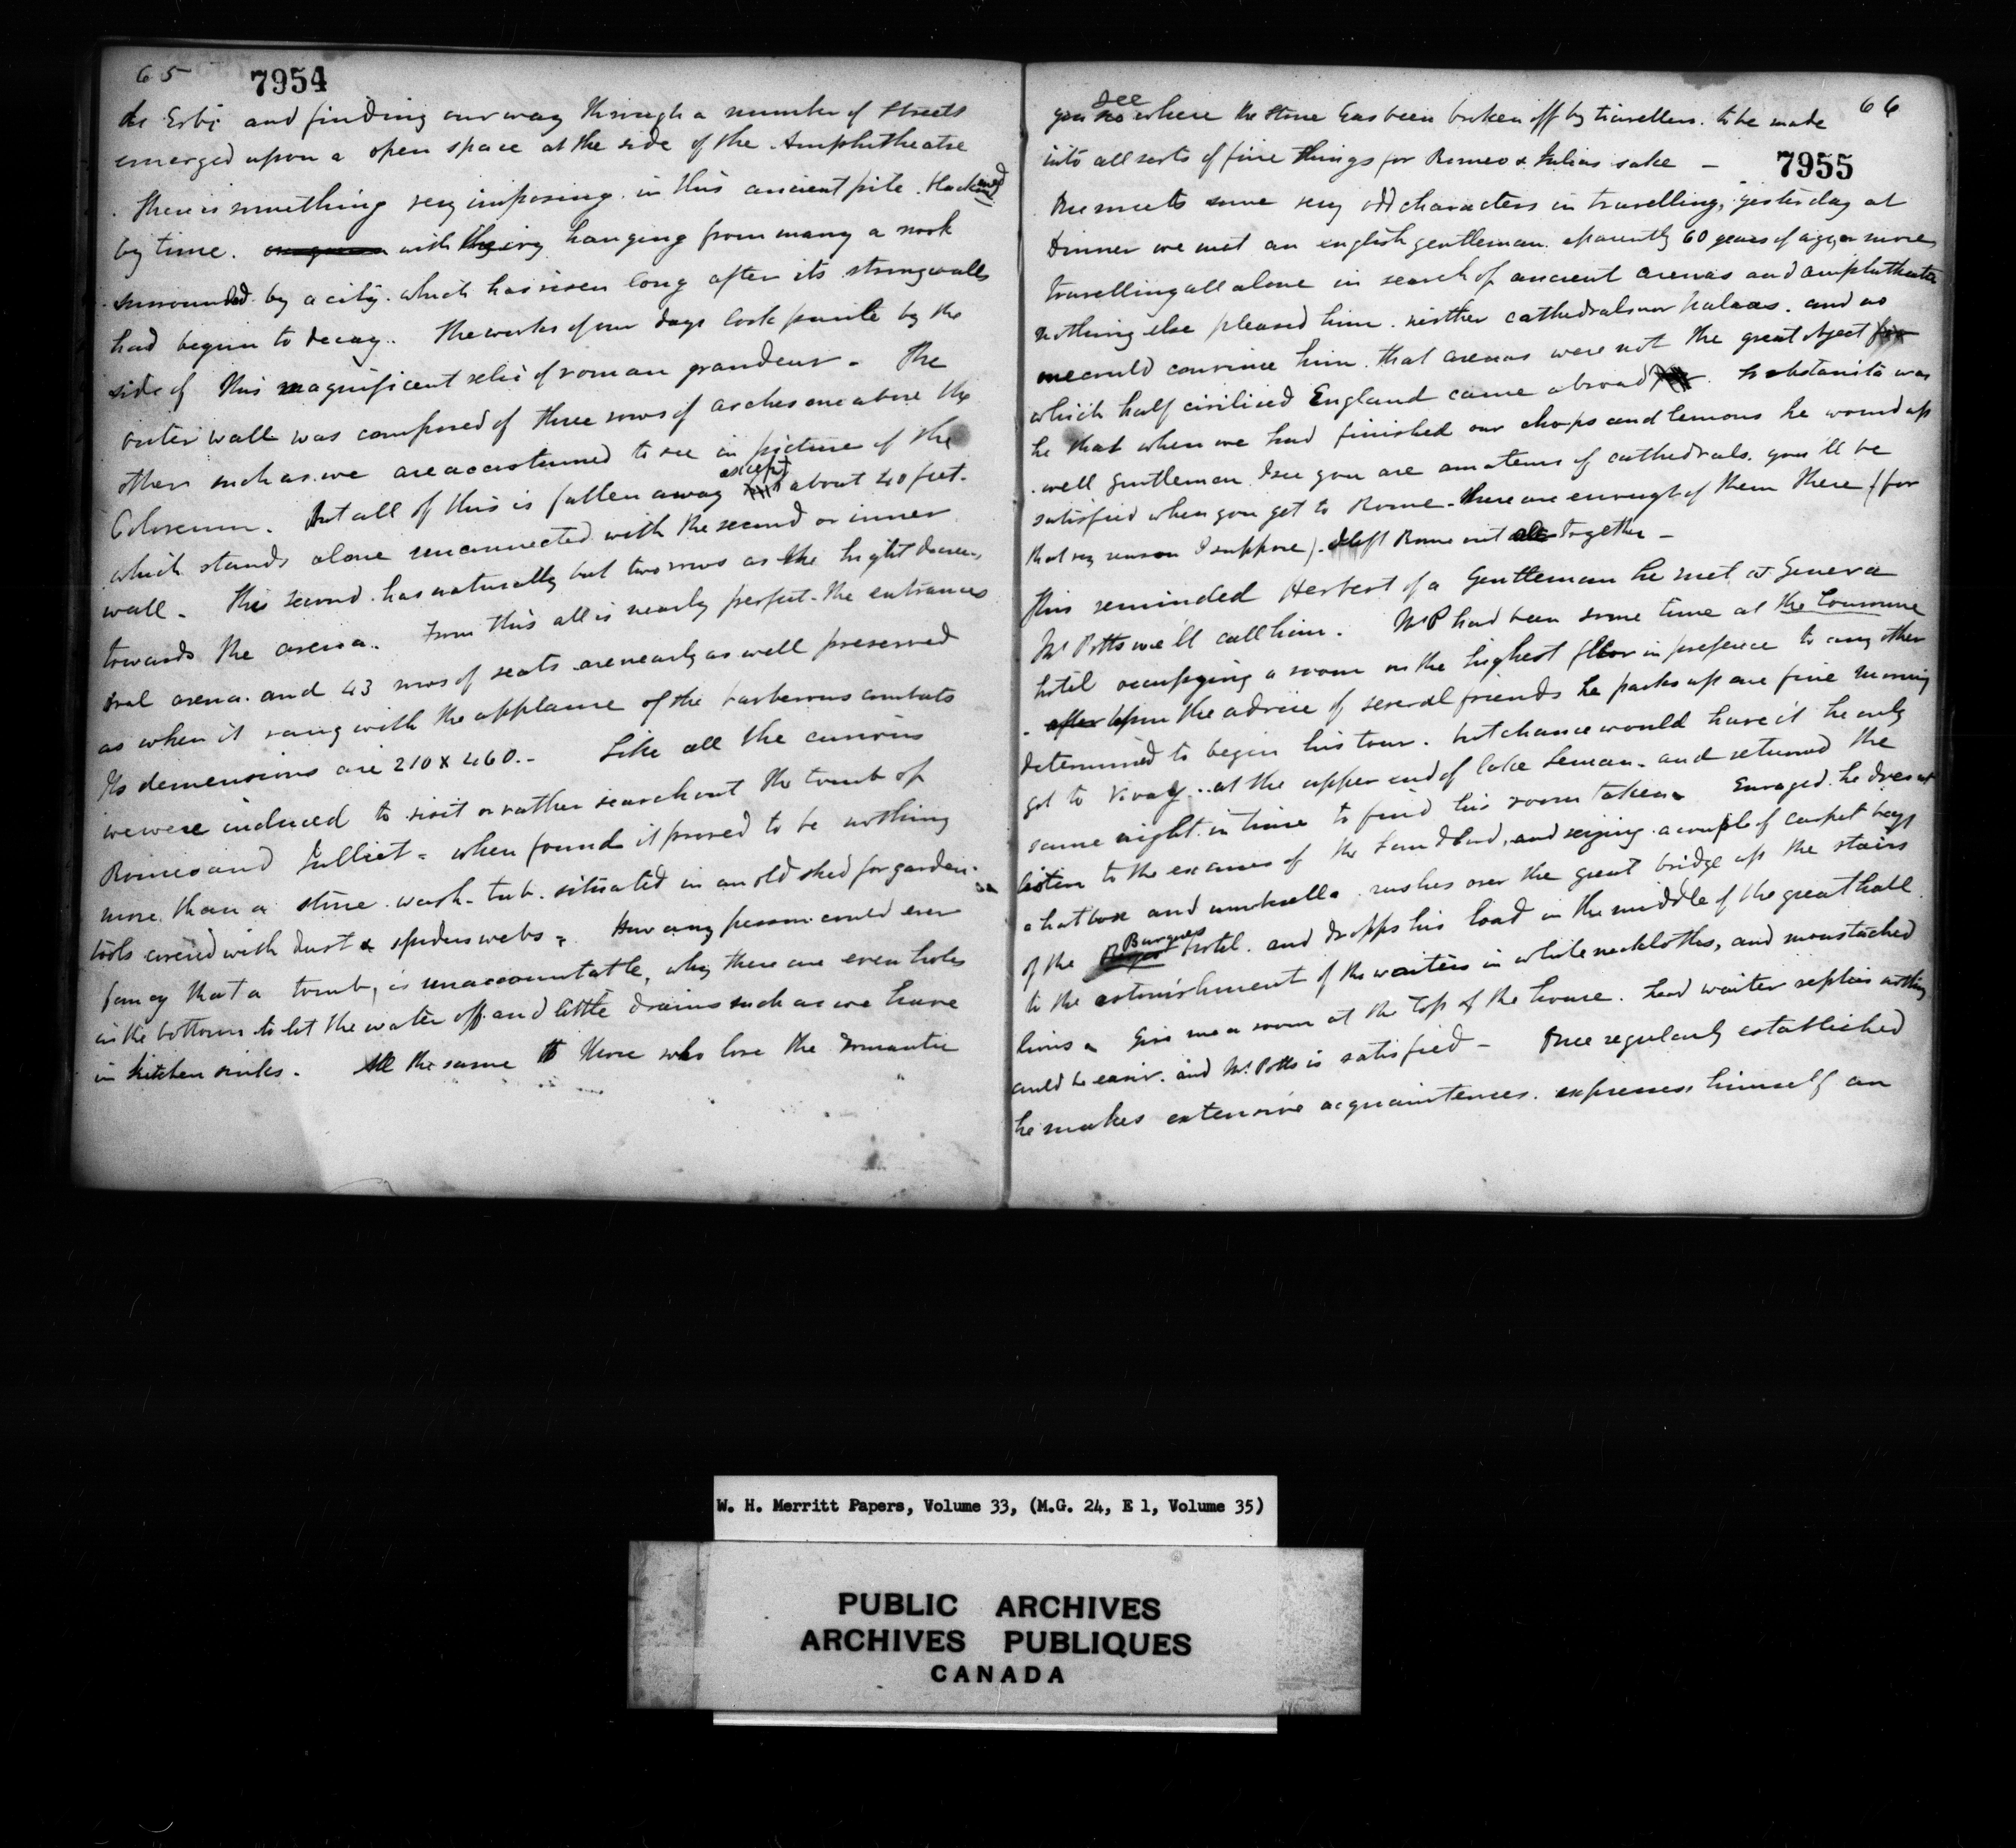 65
7954
de Erbi and finding our way through a number of streets
emerged upon a open space at the side of the Amphitheatre
There is something very imposing in this ancient pile blackened
by time. with the ivy hanging from many a nook
surrounded by a city which has risen long after its strong walls
had begun to decay.. The works of our days look puerile by the
side of this magnificent relic of roman grandeur - The
outer wall was composed of three rows of arches one above the
other such as we are accustomed to see in picture of the
Coloseum. But all of this is fallen away except about 40 feet.
which stands alone unconnected with the second or inner
wall - This second has naturally but two rows as the hight decreases
towards the arena. From this all is nearly perfect - the entrances
oval arena. and 43 rows of seats are nearly as well preserved
as when it rang with the applause of the barberous combats
Its demensions are 210 x 460. - Like all the curious
we were induced to visit or rather search out the tomb of
Romeo and Julliet - when found it proved to be nothing
more than a stone wash-tub. situated in an old shed for garden
tools covered with dust & spiders webs - How any person could ever
fancy that a tomb, is unaccountable, why there are even holes
in the bottom to let the water off and little drains such as we have
in kitchen sinks. All the same to those who love the romantic
66
7955
you see where the stone has been broken off by travellers. to be made
into all sorts of fine things for Romeo & Julias sake -
One meets some very odd characters in travelling, yesterday at
dinner we met an english gentleman aparently 60 years of age or more
travelling all alone in search of ancient arenas and amphitheatre
nothing else pleased him. neither cathedrals nor palaces. and no
one could convince him that arenas were not the great object for
which half civilized England came abroad. So obstanite was
he that when we had finished our chops and lemons he wound up
. well gentlemen I see you are amateurs of cathedrals. you'll be
satisfied when you get to Rome - there are enough of them there (for
that very reason I suppose). I left Rome out altogether -
This reminded Herbert of a Gentleman he met at Geneva
Mr Potts we'll call him. Mr P had been some time at the Couronne
hotel occupying a room on the highest floor in preference to any other
. after upon the advice of several friends he packs up one fine morning
determined to begin his tour. but chance would have it he only
got to Vivay .. at the upper end of lake Leman - and returned the
same night in time to find his room taken - Enraged he does not
listen to the excuses of the Landlord, and seizing a couple of carpet bags
a hat box and umbrella rushes over the great bridge up the stairs
of the Bergues hotel. and dropps his load in the middle of the great hall
to the astonishment of the waiters in white neckloths, and moustached
lions - Give me a room at the top of the house. head waiter replies nothing
could be easier. and Mr. Potts is satisfied - Once regularly established
he makes extensive acquaintences. expresses himself an
W. H. Merritt Papers, Volume 33, (M.G. 24, E 1, Volume 35)
PUBLIC ARCHIVES
ARCHIVES PUBLIQUES
CANADA